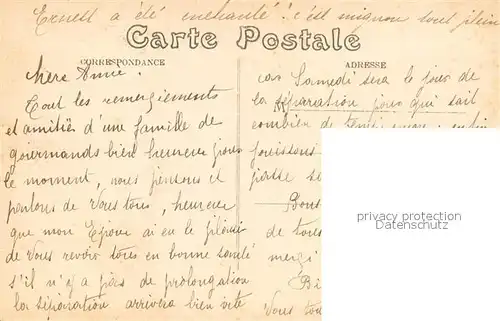 Ernest a été enchanté ! c'est mignon tout plein
Carte Postale
CORRESPONDANCE
Chère Amie.
Tout les remerciements
et amitiés d'une famille de
gourmands bien heureux pour
le moment, nous pensons et
pensons de Vous tous, heureux
que mon Epoux ai eu le plaisir
de Vous revoir tous en bonne santé
s'il n'y a pas de prolongation
la séparation arrivera bien vite
ADRESSE
car Samedi sera le jour de
la séparation pour qui sait
combien de temps
jouissons
Bons
de tous
merci
Vous
privacy protection
Datenschutz